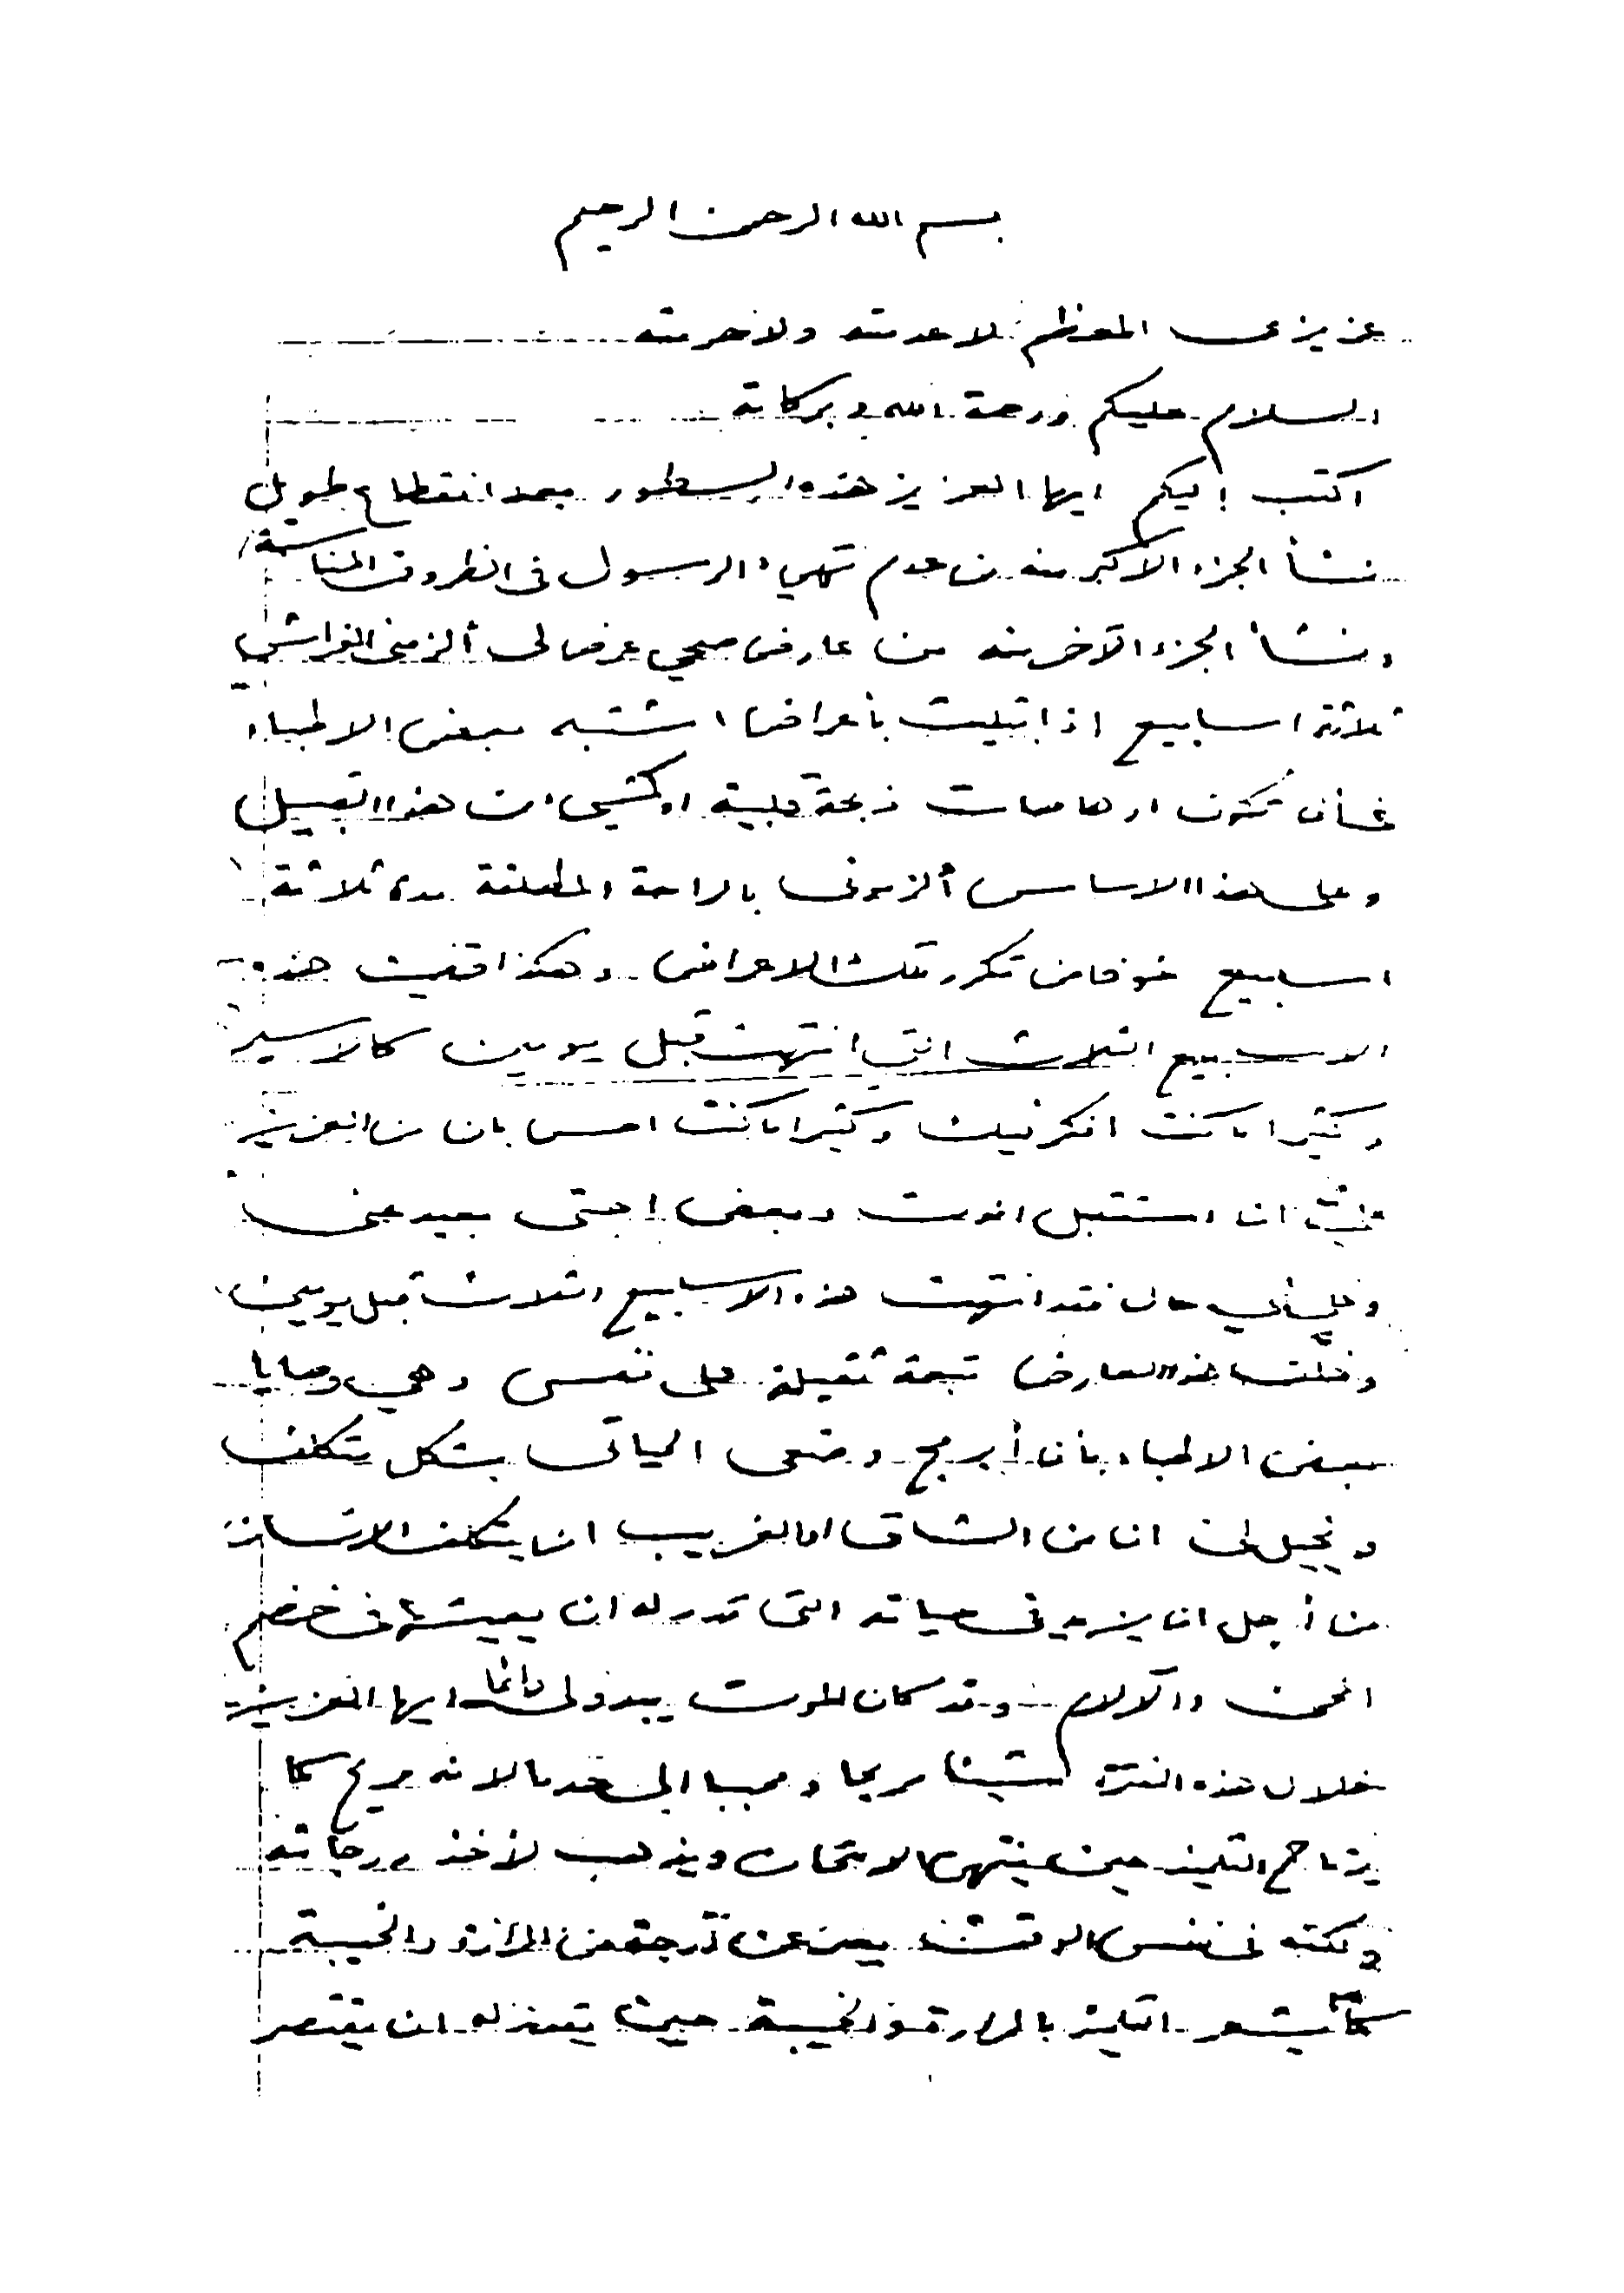 بسم الله الرحمن الرحيم
عزيزي المعظم لا عدمته ولا حرمته
السلام عليكم ورحمة الله وبركاته
اكتب إليكم ايها العزيز هذه السطور بعد انقطاع طويل
نشأ الجزء الاكبر منه من عدم تهيء الرسول في الظروف المناسبة
ونشأ الجزء الآخر منه من عارض صحي عرض لي ألزمني الفراش
ثلاثة اسابيع اذ ابتليت بأعراض اشتبه بعض الاطباء
في أن تكون ارهاصات ذبحة قلبية او شيء من هذا القبيل
وعلى هذا الاساس ألزموني بالراحة المطلقة مدة ثلاثة
اسابيع خوفا من تكرر تلك الاعراض وهكذا قضيت هذه
الاسابيع الثلاث التي انتهت قبل يومين كالاسير
وكثيرا ما كنت افكر فيك وكثيرا ما كنت احس بان من العزيز
علي ان استقبل الموت وبعض احبتي بعيد عني
وعلى أي حال فقد انتهت هذه الاسابيع الثلاث قبل يومين
وخلف هذا العارض تبعة ثقيلة على نفسي وهي وصايا
بعض الاطباء بأن أبرمج وضعي الحياتي بشكل متكلف
ويخيل لي ان من الشاق او الغريب ان يتكلف الانسان
من أجل ان يزيد في حياته التي قدر له ان يعيشها في خضم
المحن والآلام وقد كان الموت يبدو لي دائما ايها العزيز
خلال هذه الفترة شيئا مريحا ومحببا إلى حد ما لانه مريح كما
يرتاح التلميذ حين ينتهي الامتحان ويذهب لأخذ درجاته
ولكنه في نفس الوقت يعبر عن درجة من المرارة والخيبة
كما يشعر التلميذ بالمرارة والخيبة حين يتعذر له ان يقتصر